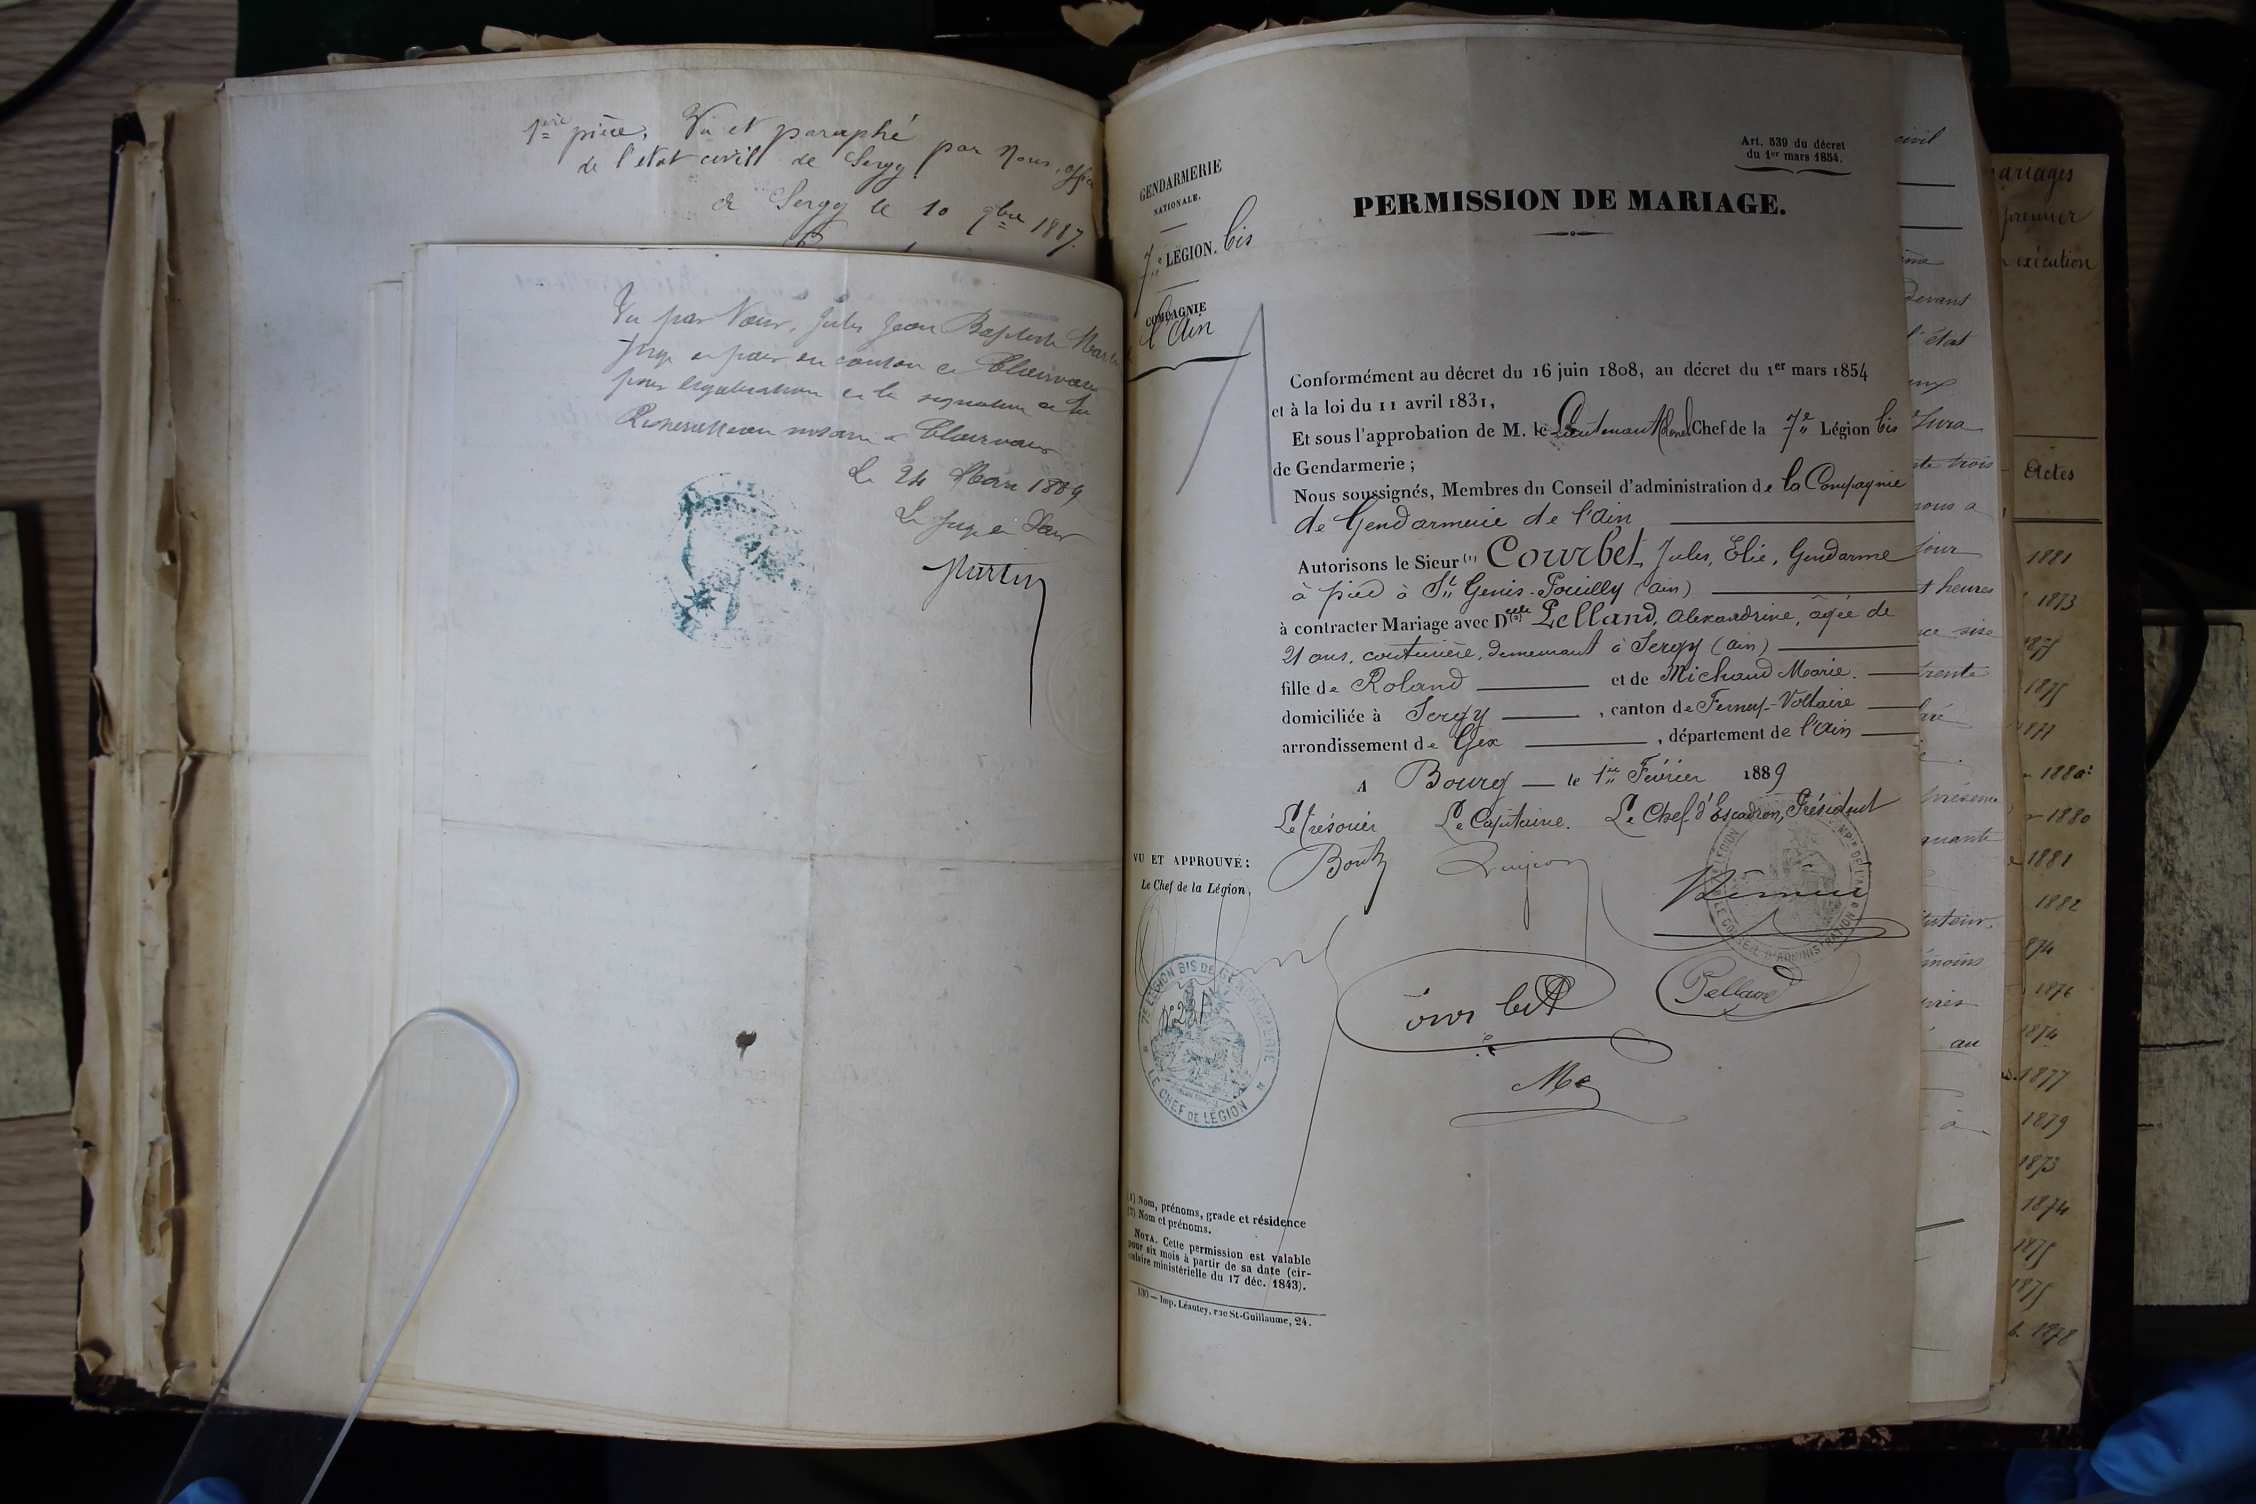 1ère pièce. Vu et paraphé par Nous, offi
de l'état civil de Sergy.
à Sergy le 10 9bre 1887.
Vu par Nous, Jules Jean Baptiste Martin
Juge de paix du canton de Clairvaux
pour légalisation de la signature de Me
notaire à Clairvaux
Le 24 Mars 1889
Le Juge de Paix
Martin
GENDARMERIE
NATIONALE.
7e LÉGION. bis
COMPAGNIE
de l'Ain
Art. 539 du décret
du 1er mars 1854.
PERMISSION DE MARIAGE.
Conformément au décret du 16 juin 1808, au décret du 1er mars 1854
et à la loi du 11 avril 1831,
Et sous l'approbation de M. le Lieutenant Colonel Chef de la 7e Légion bis
de Gendarmerie ;
Nous soussignés, Membres du Conseil d'administration de la Compagnie
de Gendarmerie de l'Ain
Autorisons le Sieur (1) Courbet, Jules, Elie, Gendarme
à pied à St Genis-Pouilly (Ain)
à contracter Mariage avec Delle (2) Pelland, Alexandrine, âgée de
21 ans, couturière, demeurant à Sergy (Ain)
fille de Roland et de Michaud Marie.
domiciliée à Sergy, canton de Ferney-Voltaire
arrondissement de Gex, département de l'Ain
A Bourg le 1er Février 1889
Le Trésorier Le Capitaine. Le Chef d'Escadron, Président
VU ET APPROUVÉ :
Le Chef de la Légion,
7E LÉGION BIS DE GENDARMERIE
LE CHEF DE LÉGION
N° 231
LE CONSEIL D'ADMINISTRATION
Courbet
Pelland
(1) Nom, prénoms, grade et résidence
(2) Nom et prénoms.
NOTA. Cette permission est valable
pour six mois à partir de sa date (cir-
culaire ministérielle du 17 déc. 1843).
130 — Imp. Léautey, rue St-Guillaume, 24.
civil
devant
l'état
Jura
trois
jour
heures
sise
trente
présence
quante
témoins
au
à
mariages
premier
exécution
Actes
1881
1883
1875
1877
1880
1880
1881
1882
1874
1876
1874
1877
1879
1873
1874
1875
1875
1878